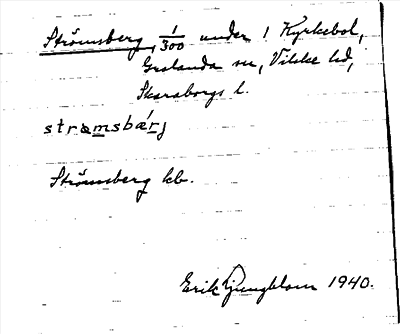 Strömsberg, 1/300 under 1 Kyrkebol,
Grolanda sn, Vilske hd,
Skaraborgs l.
strømsbærj
Strömsberg kb.
Erik Ljungblom 1940.